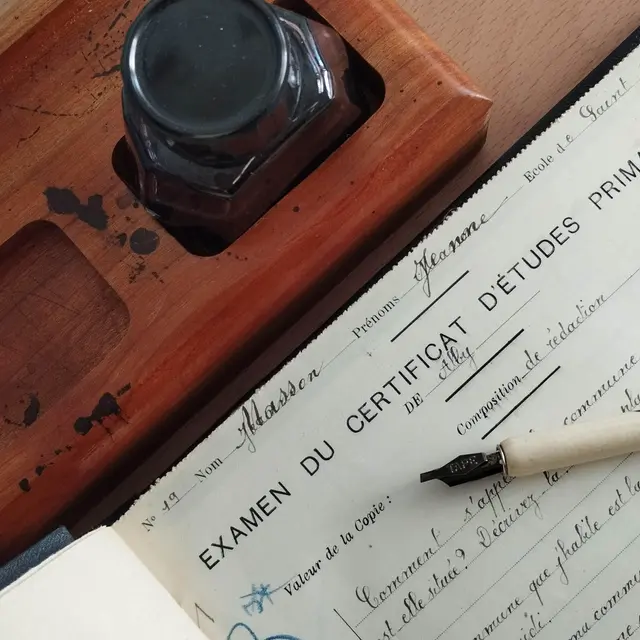 Nº 19 Nom Masson Prénoms Jeanne École de Saint
EXAMEN DU CERTIFICAT D'ÉTUDES PRIM
DE Alby
Composition de rédaction
Valeur de la Copie :
Comment s'appe commune
est elle située? Décrivez la
mmune que j'habite est la
ma commu